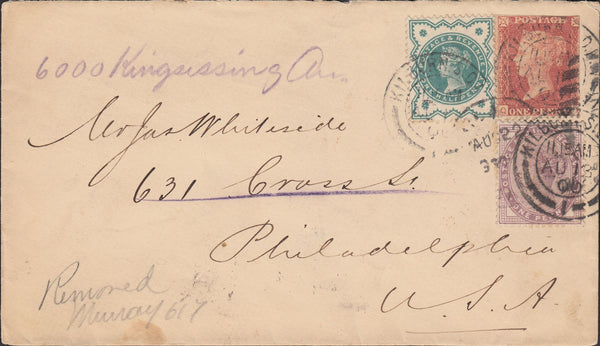 6000 Kingsessing Av.
Mr Jas Whiteside
631 Cross St.
Philadelphia
U.S.A.
Removed
Murray 617
POSTAGE & REVENUE
HALF PENNY
POSTAGE
ONE PENNY
KILBURN
AU
KILBURN
11.15 AM
AU 1
00